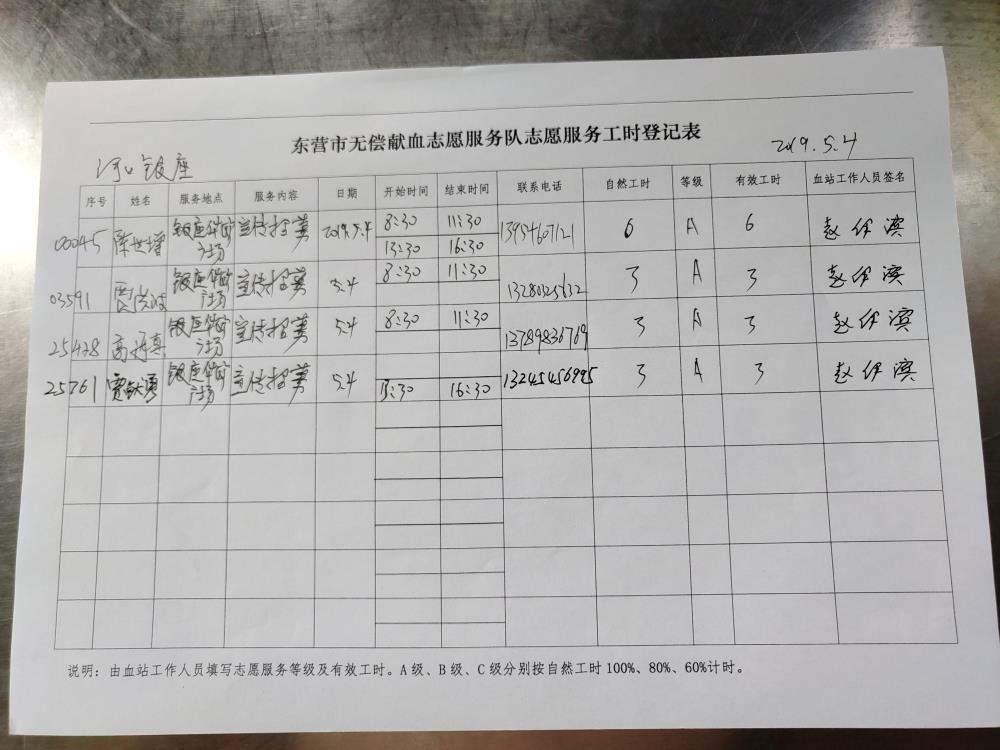 东营市无偿献血志愿服务队志愿服务工时登记表
河口银座 2019.5.4
序号 姓名 服务地点 服务内容 日期 开始时间 结束时间 联系电话 自然工时 等级 有效工时 血站工作人员签名
00045 陈世增 银座 广场 宣传招募 2019.5.4 8:30 11:30 13954607121 6 A 6
13:30 16:30
03591 银座 广场 宣传招募 5.4 8:30 11:30 13280325632 3 A 3
25428 银座 广场 宣传招募 5.4 8:30 11:30 13789836769 3 A 3
25761 银座 广场 宣传招募 5.4 13:30 16:30 13245456995 3 A 3
说明：由血站工作人员填写志愿服务等级及有效工时。A级、B级、C级分别按自然工时100%、80%、60%计时。